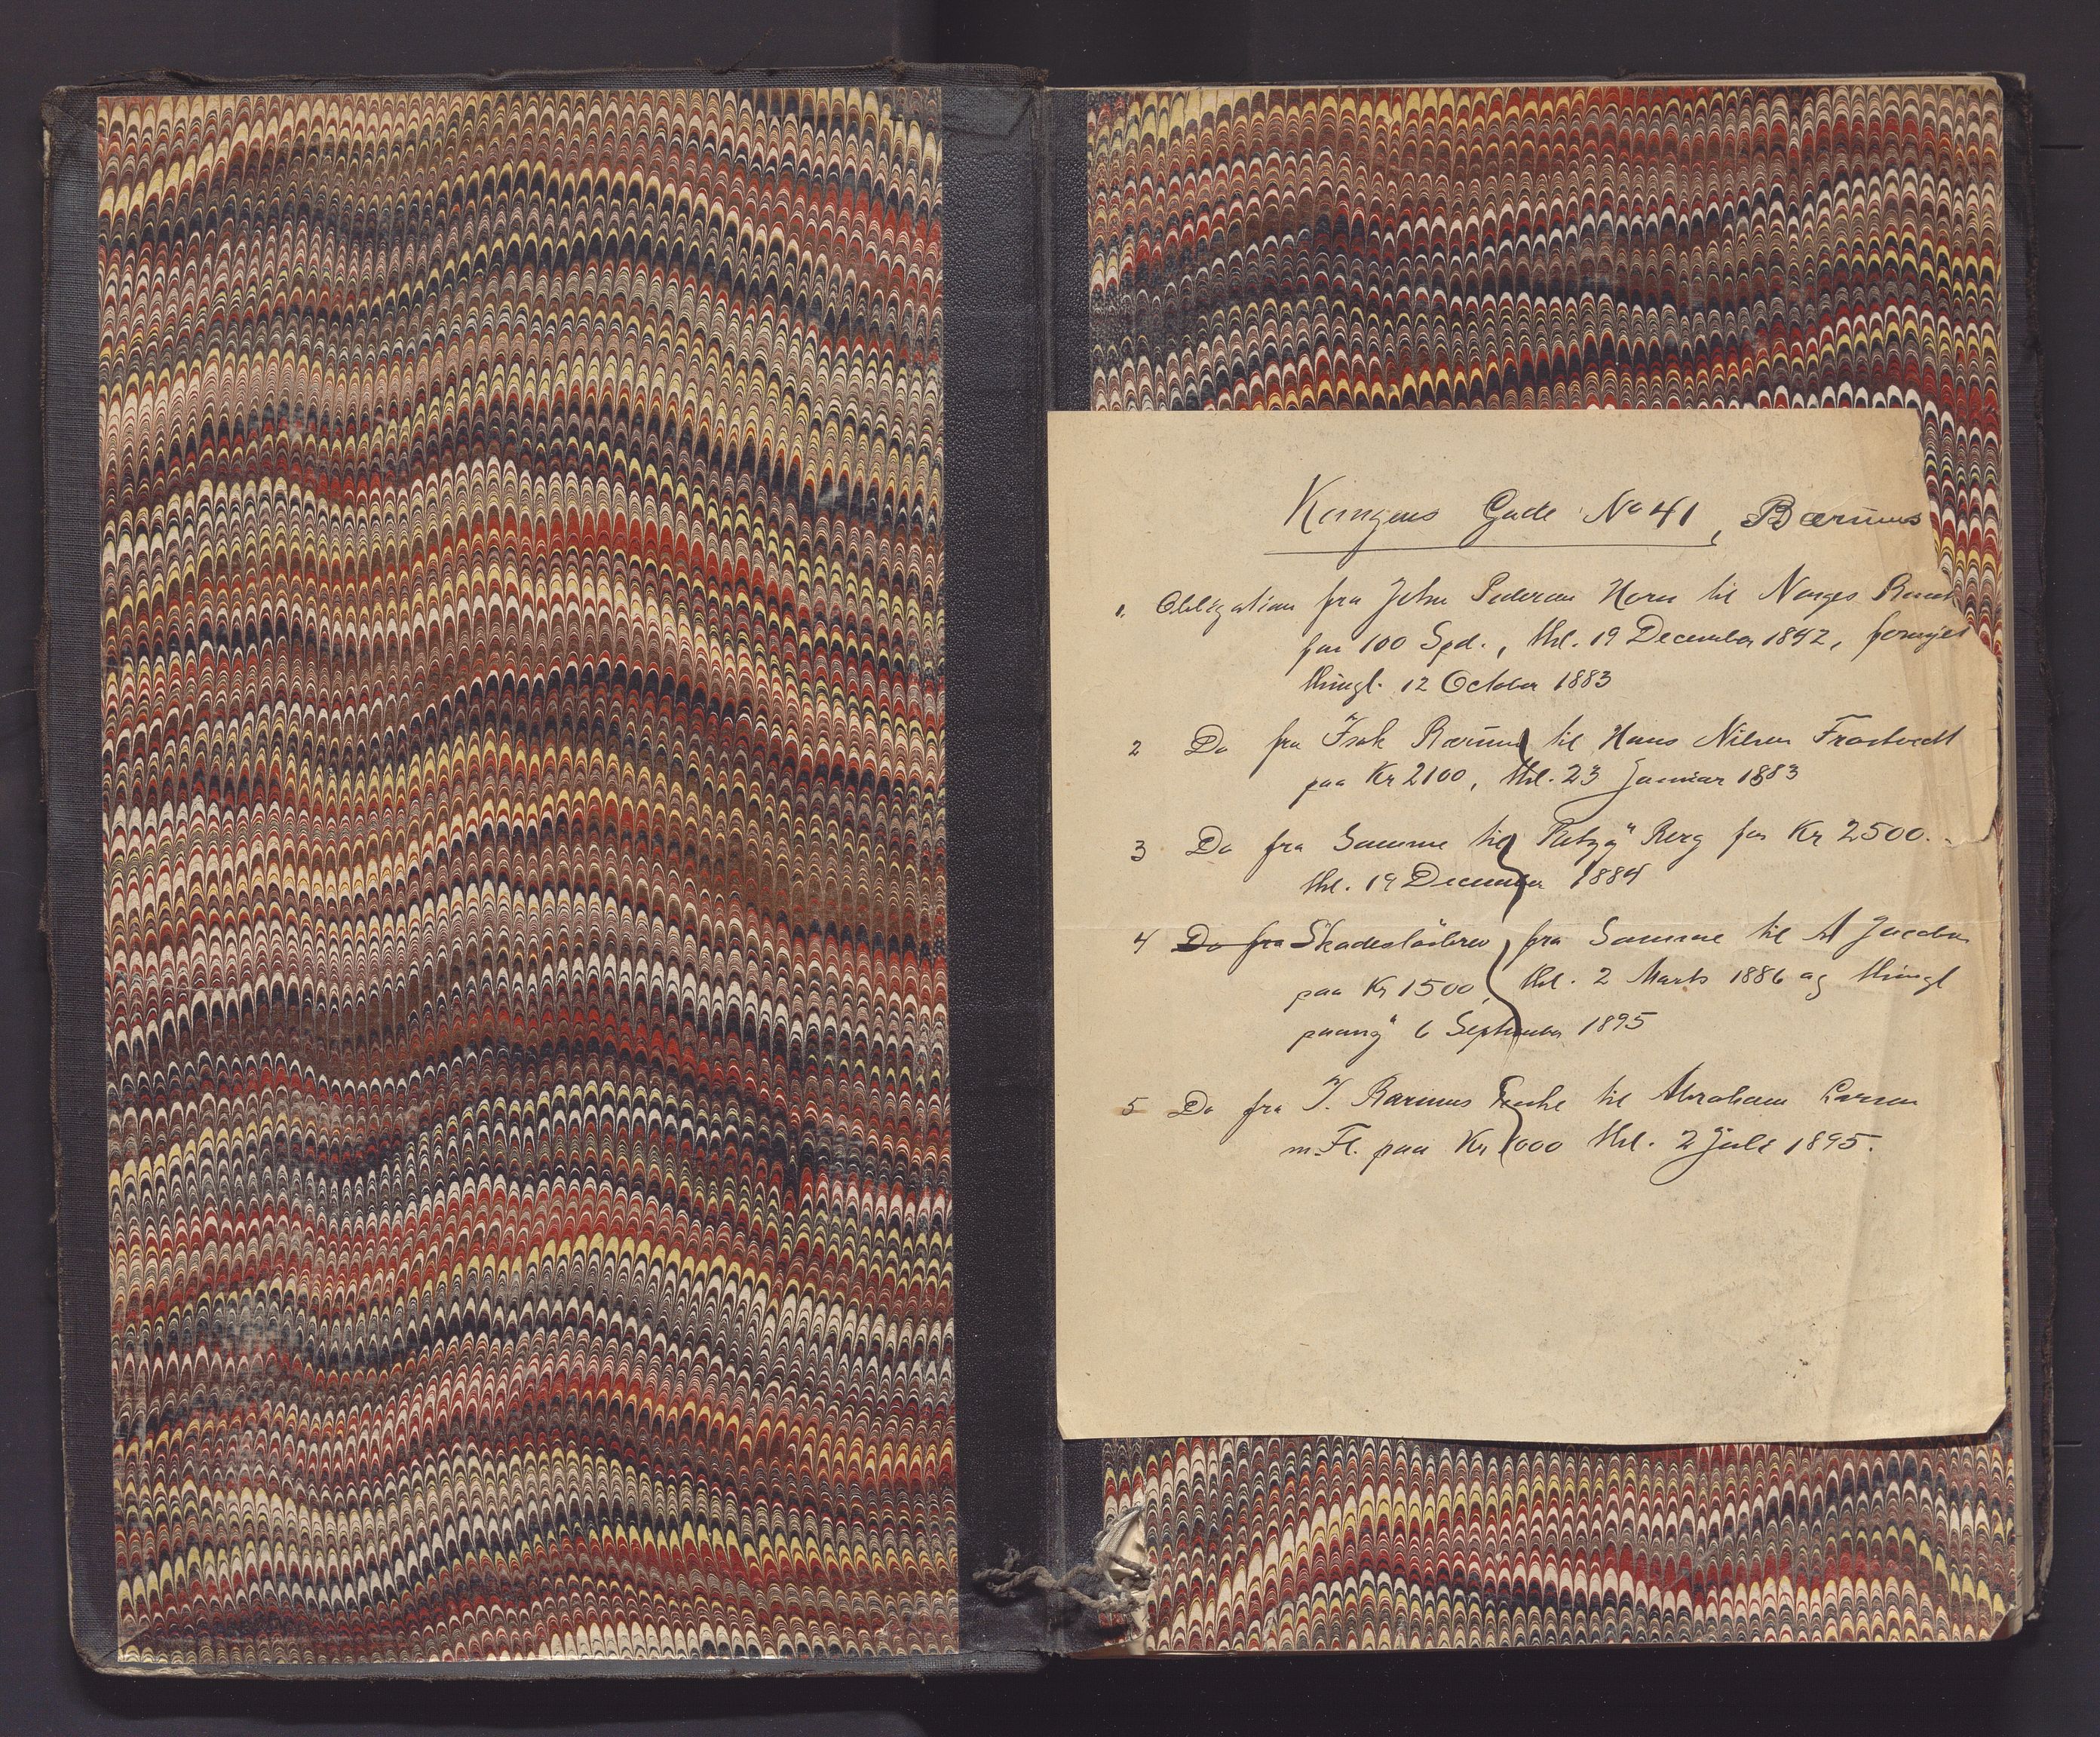 Kongens Gade No 41, Bærums
1. Obligation fra John Pedersen Horn til Norges Bank
for 100 Spd., thl. 19 December 1842, fornyet
thingl. 12 October 1883
2 Do fra Isak Bærums til Hans Nilsen Frostvedt
paa Kr 2100, thl. 23 Januar 1883
3 Do fra Samme til Berg for Kr 2500.
thl. 19 December 1884
4 Do fra Skadesløsbrev fra Samme til A Jacobsen
paa Kr 1500, thl. 2 Marts 1886 og thingl
paany 6 September 1895
5 Do fra I. Bærums Enke til Abraham Larsen
m. Fl. paa Kr 1000 thl. 2 Juli 1895.